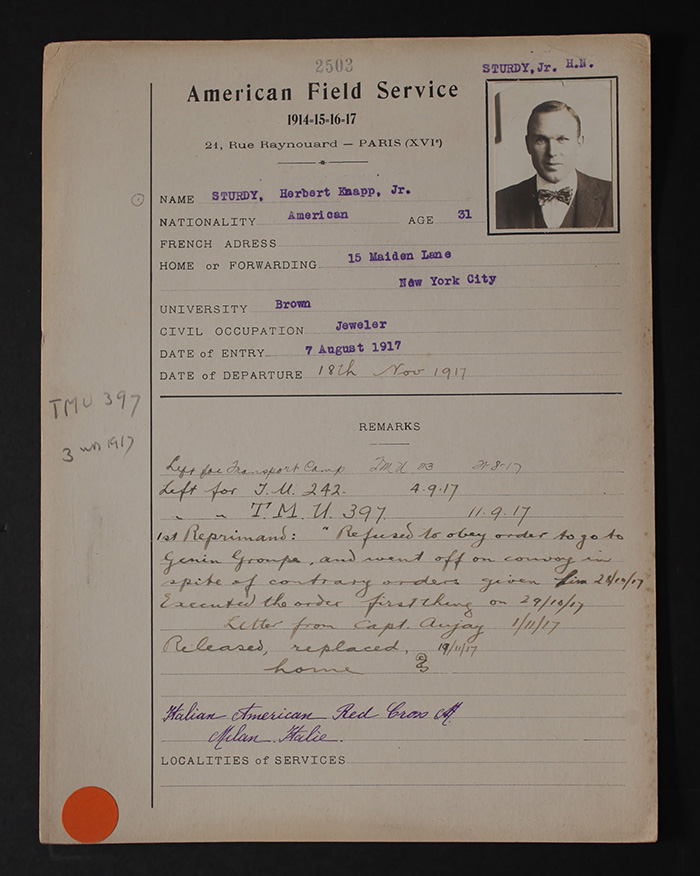 2503
STURDY, Jr. H.N.
American Field Service
1914-15-16-17
21, Rue Raynouard — PARIS (XVIᵉ)
NAME STURDY, Herbert Knapp, Jr.
NATIONALITY American AGE 31
FRENCH ADRESS
HOME or FORWARDING 15 Maiden Lane
New York City
UNIVERSITY Brown
CIVIL OCCUPATION Jeweler
DATE of ENTRY 7 August 1917
DATE of DEPARTURE 18th Nov 1917
TMU 397
3 1917
REMARKS
Left for Transport Camp TMU 8-17
Left for T.U. 242. 4.9.17
" " T.M.U. 397. 11.9.17
1st Reprimand: " Refused to obey order to go to
Genin Groupe, and went off on convoy in
spite of contrary orders given him 28/10/17
Executed the order first thing on 29/10/17
Letter from Capt. 1/11/17
Released, replaced, 19/11/17
home
Italian American Red Cross
Milan. Italie.
LOCALITIES of SERVICES